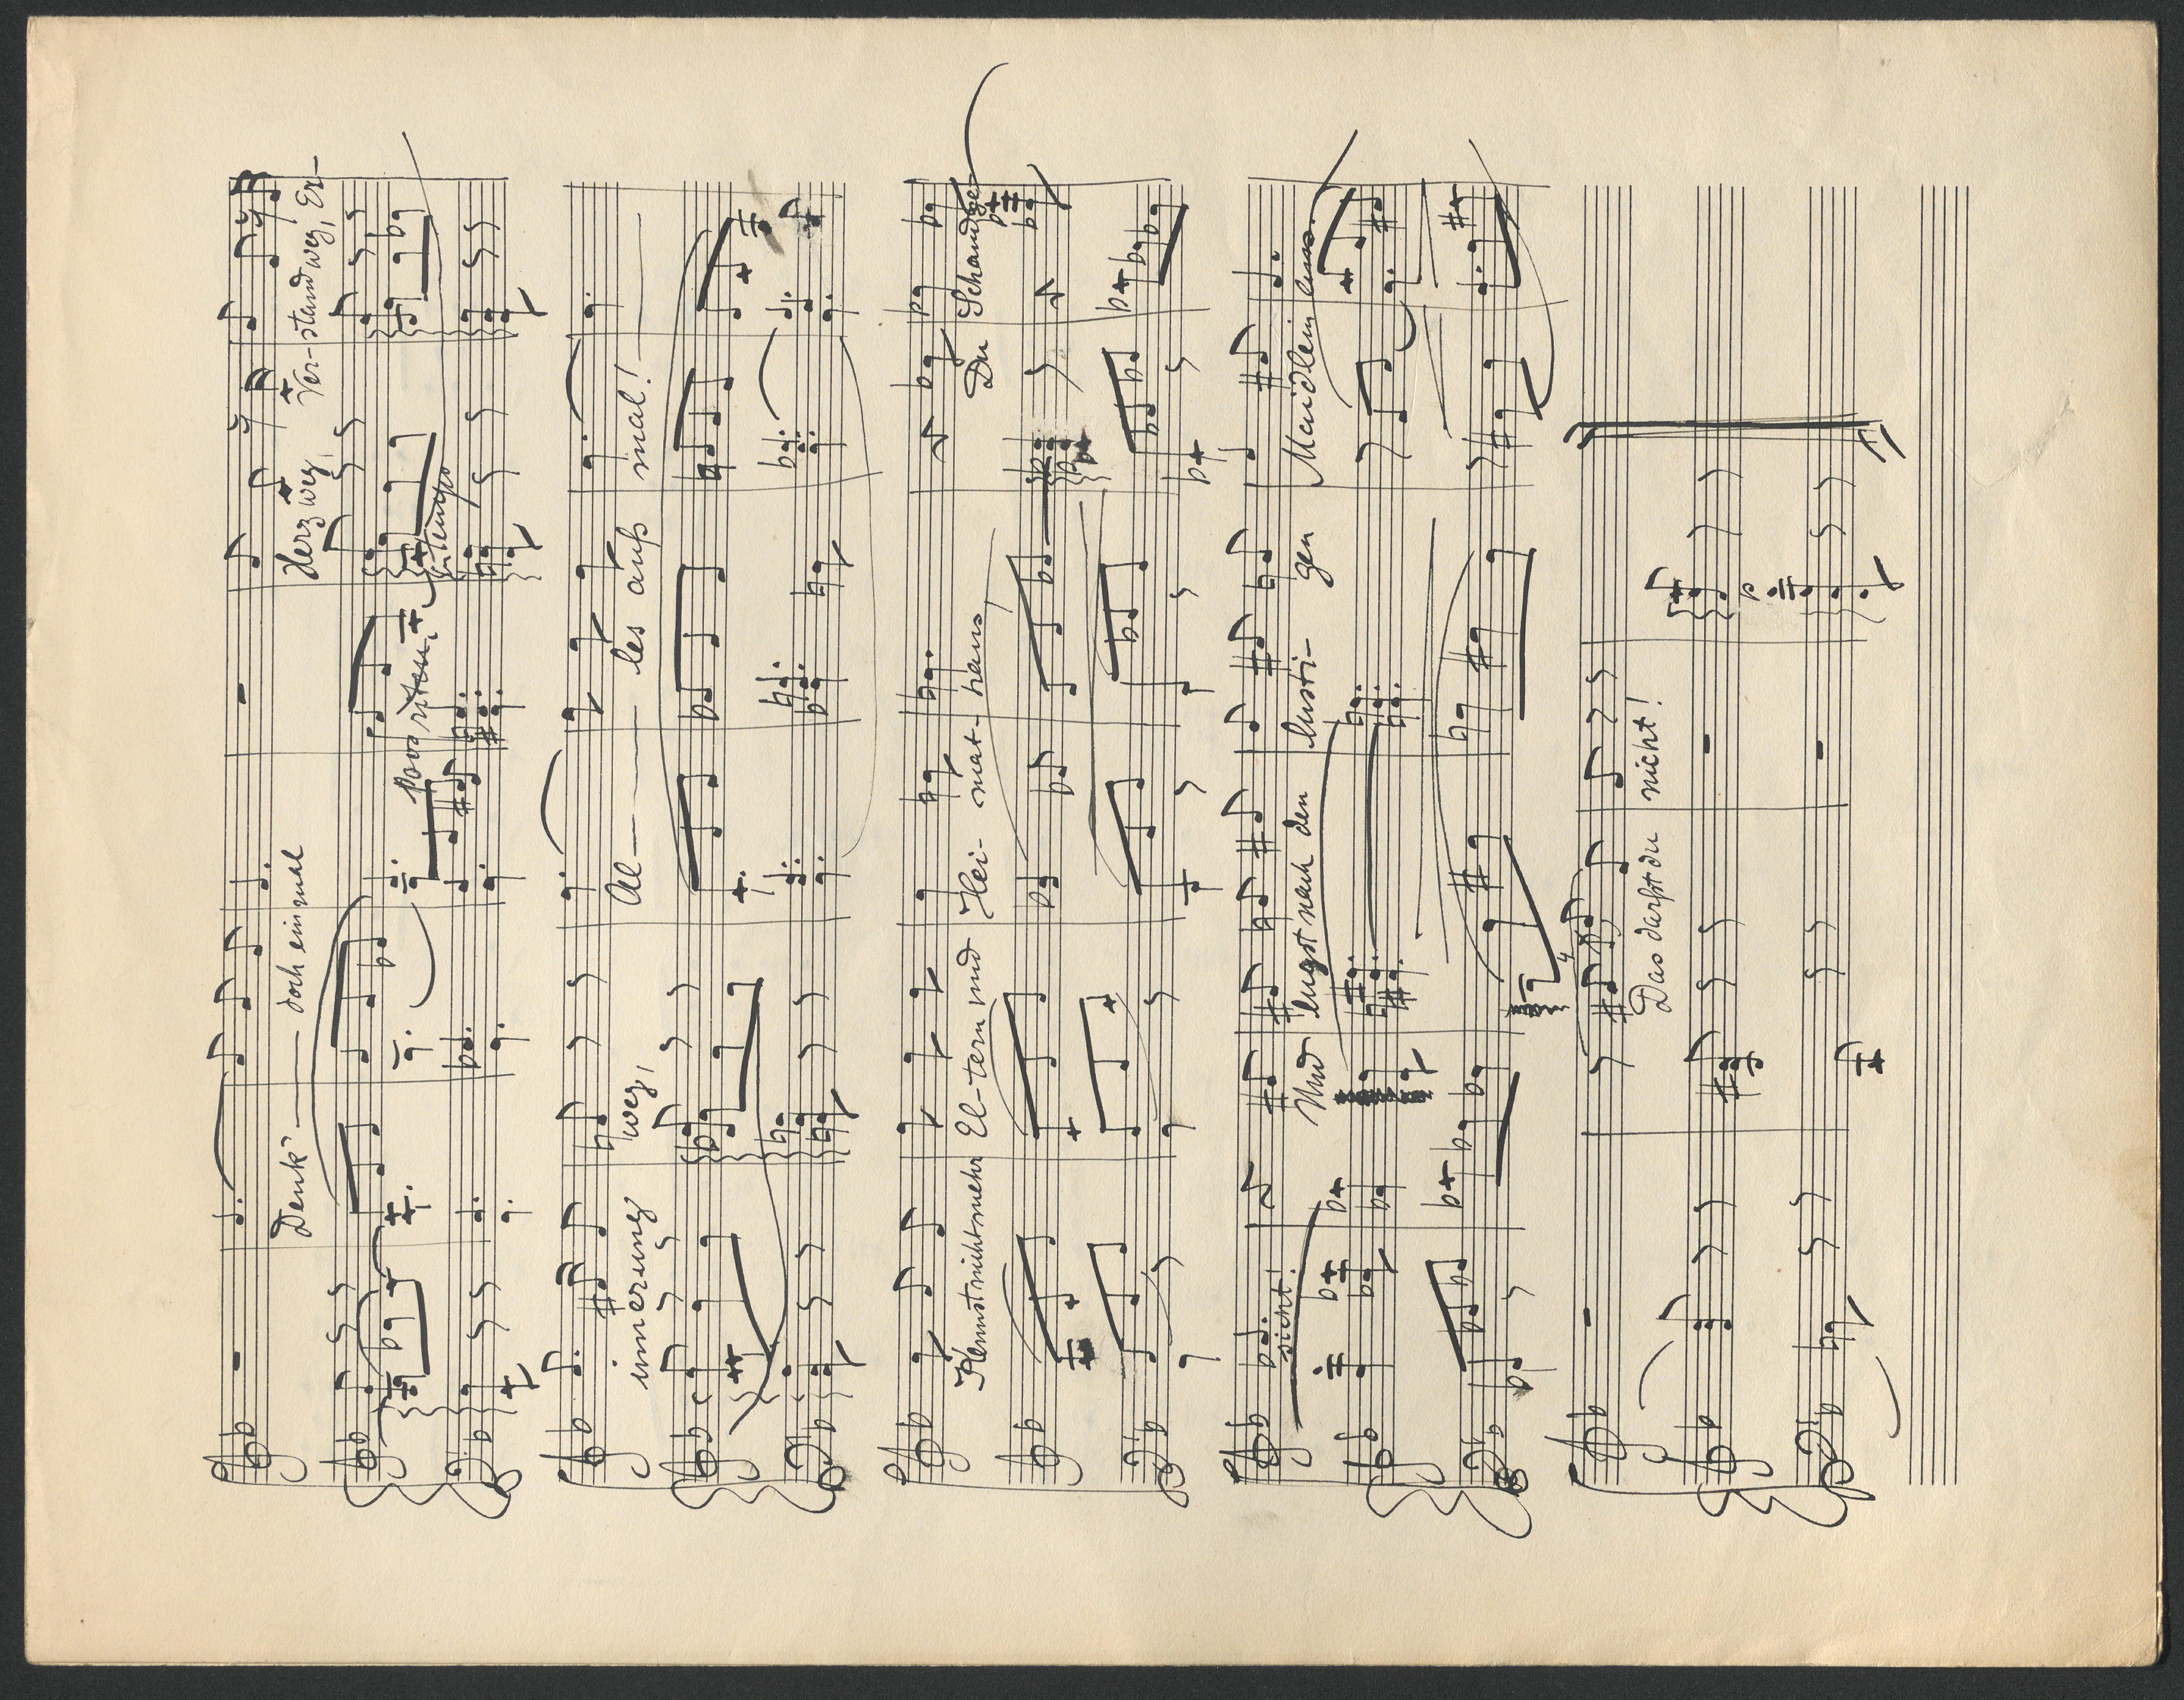 Denk' doch einmal Herz weg, Ver-stand weg, Er-
poco riten. a tempo
innerung weg, Al- les auß mal!
Kennst nicht mehr El-tern und Hei- mat- haus, Du Schandge-
sicht! Und lugst nach den lusti- gen Maidlein aus.
4
Das darfst du nicht!
p